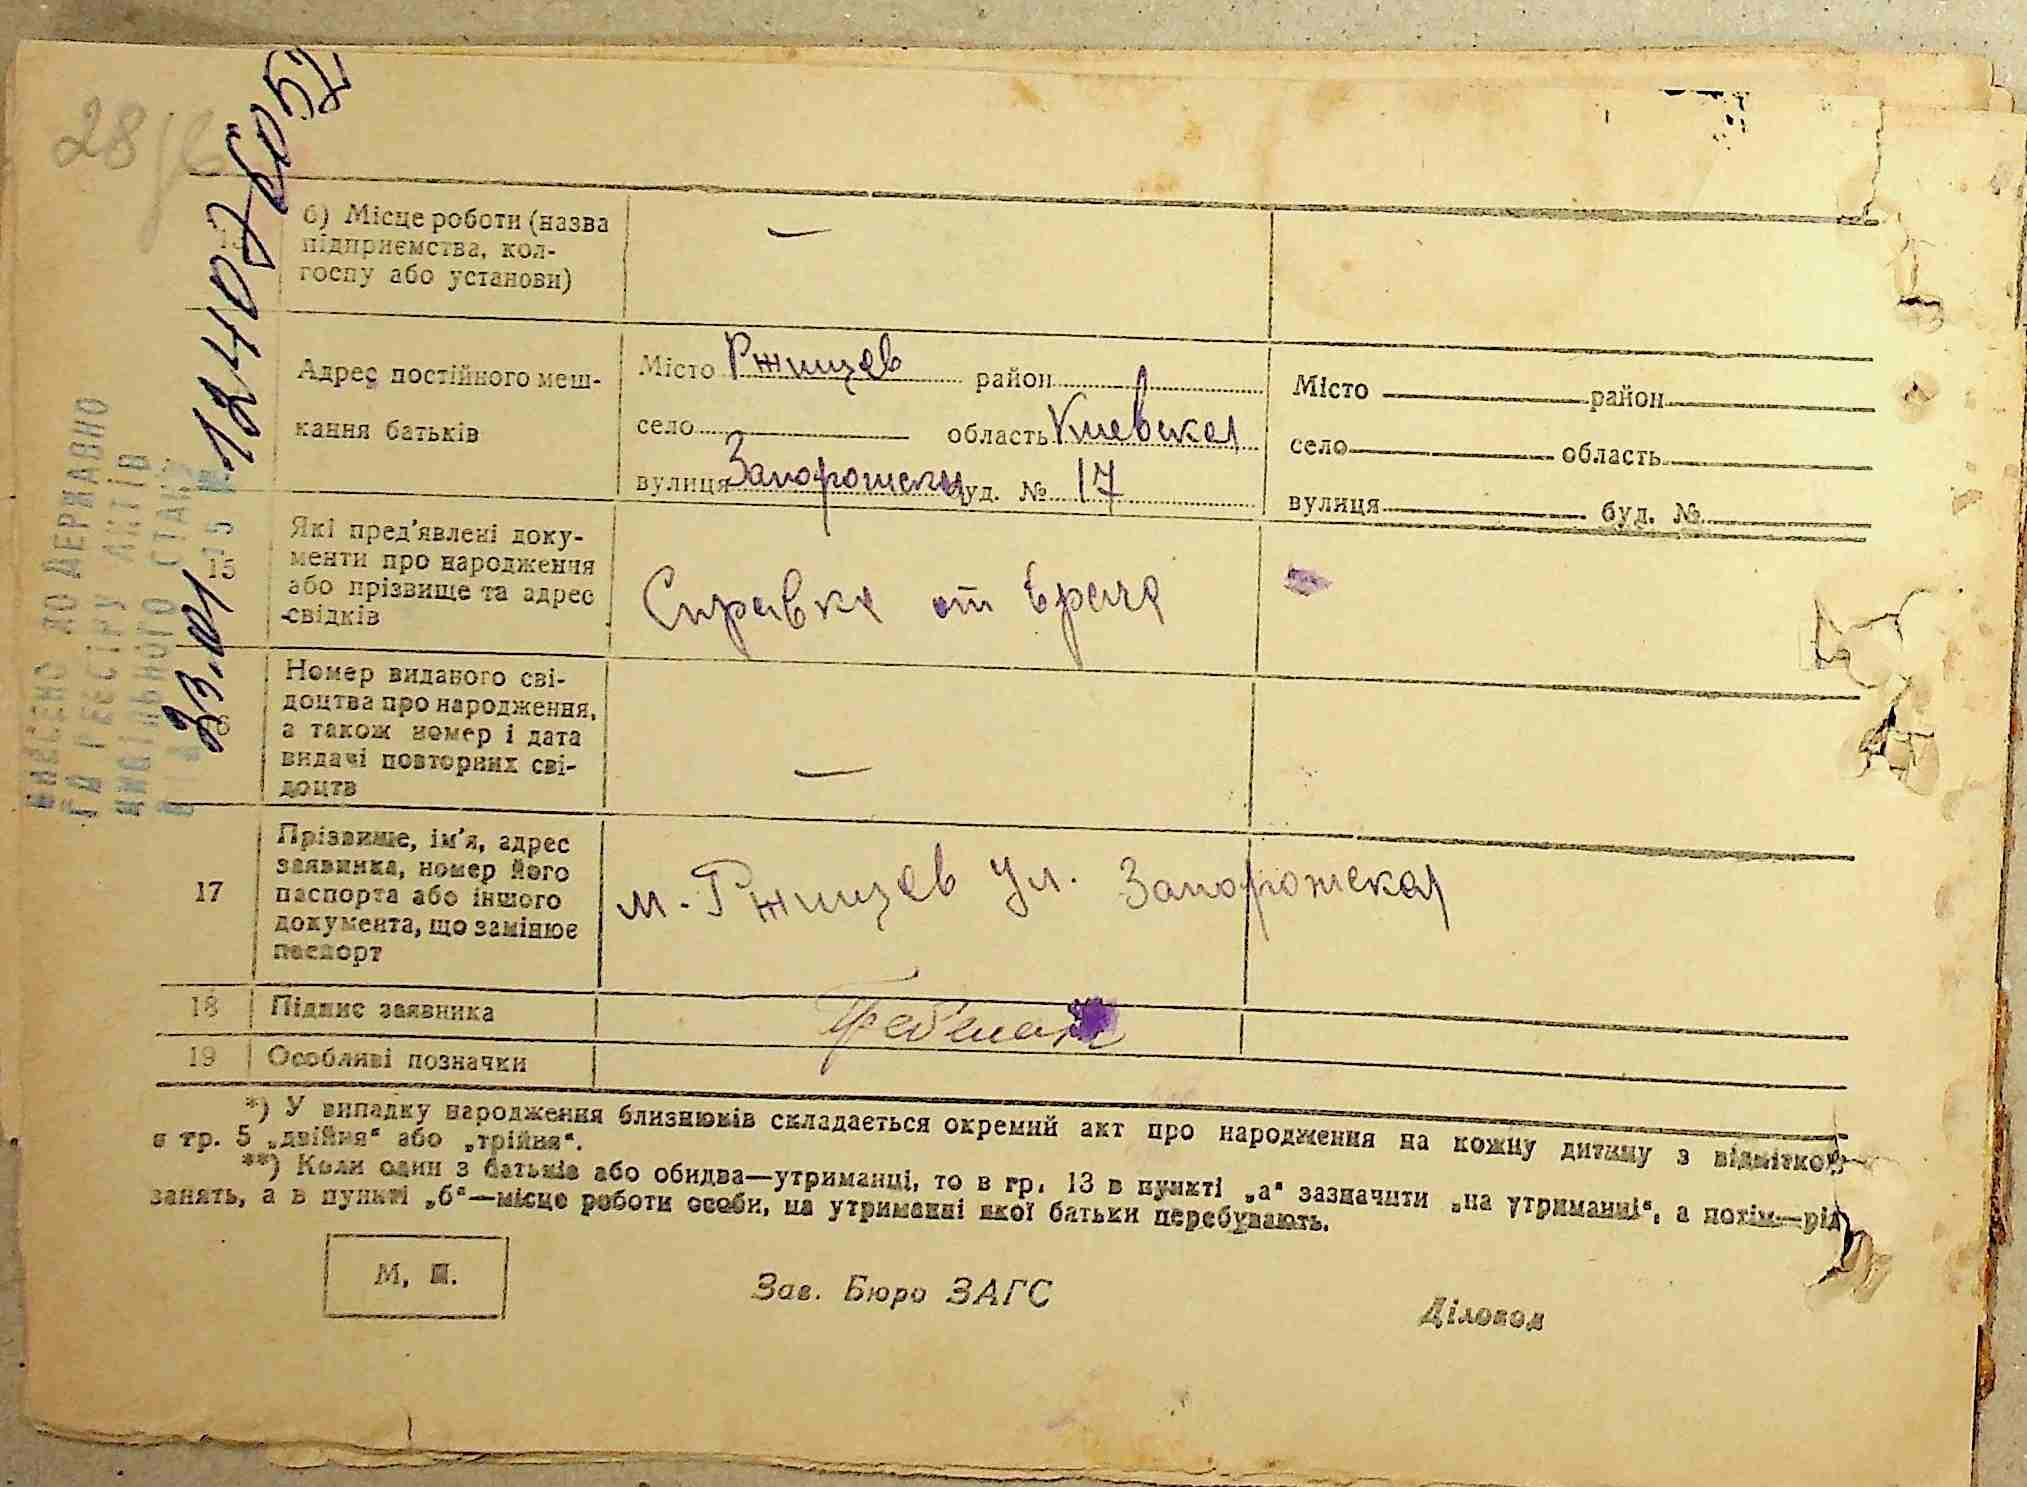 28/6
ВНЕСЕНО ДО ДЕРЖАВНО
ГО РЕЄСТРУ АКТІВ
ЦИВІЛЬНОГО СТАНУ
23.01 15 № 12407605
13
б) Місце роботи (назва
підприємства, кол-
госпу або установи)
—
Адрес постійного меш-
кання батьків
Місто Ржищев район
село область Киевская
вулиця Запорожская буд. № 17
Місто район
село область
вулиця буд. №
15
Які пред'явлені доку-
менти про народження
або прізвище та адрес
свідків
Справка от врача
Номер виданого сві-
доцтва про народження,
а також номер і дата
видачі повторних сві-
доцтв
—
17
Прізвище, ім'я, адрес
заявника, номер його
паспорта або іншого
документа, що замінює
паспорт
м. Ржищев ул. Запорожская
18 Підпис заявника
19 Особливі позначки
*) У випадку народження близнюків складається окремий акт про народження на кожну дитину з відміткою
в гр. 5 „двійня“ або „трійня“.
**) Коли один з батьків або обидва—утриманці, то в гр. 13 в пункті „а“ зазначити „на утриманні“, а потім—рід
занять, а в пункті „б“—місце роботи особи, на утриманні якої батьки перебувають.
М. П.
Зав. Бюро ЗАГС
Діловод